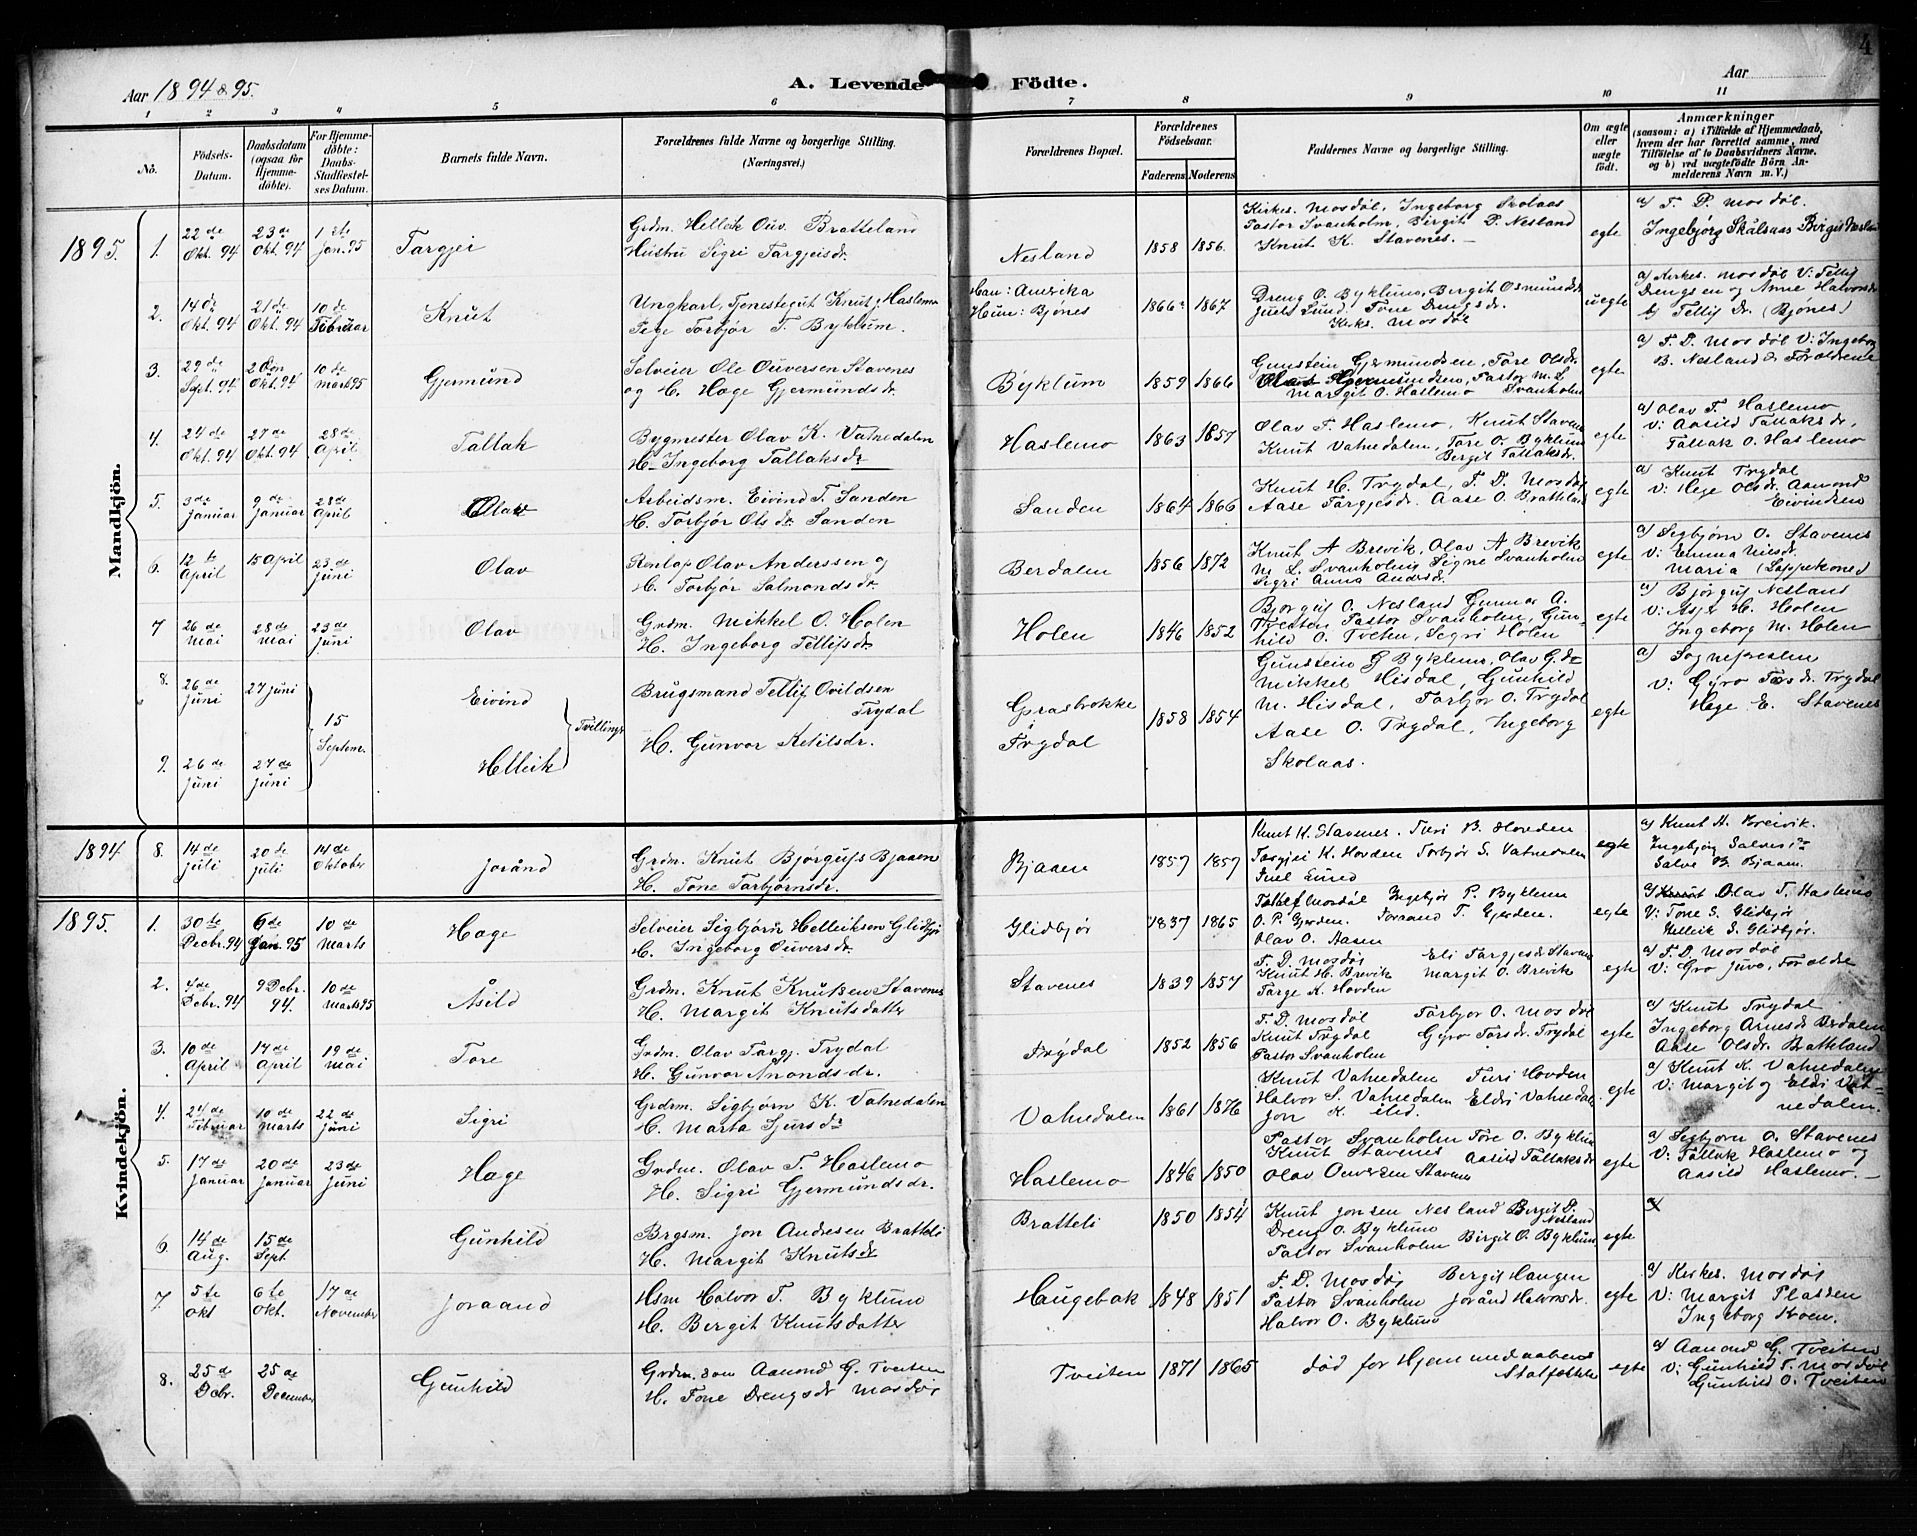 4
Aar 1894 & 95.
A. Levende Födte.
Aar
1 2 3 4 5 6 7 8 9 10 11
No.
Födsels-Datum.
Daabsdatum (ogsaa for Hjemmedöbte).
For Hjemmedöbte: Daabs-Stadfæstelses Datum.
Barnets fulde Navn.
Forældrenes fulde Navne og borgerlige Stilling. (Næringsvei.)
Forældrenes Bopæl.
Forældrenes Födselsaar.
Faderens Moderens
Faddernes Navne og borgerlige Stilling.
Om ægte eller uægte födt.
Anmærkninger (saasom: a) i Tilfælde af Hjemmedaab, hvem der har forrettet samme, med Tilföielse af to Daabsvidners Navne, og b) ved uægtefödte Börn Anmelderens Navn m. V.)
Mandkjön.
1895.
1. 22de Okt. 94 23de Okt. 94 1ste Jan. 95 Targjei
Grdm. Helleik Ouv. Bratteland
Hustru Sigri Targjeisdr.
Nesland 1858 1856
Kirkes. Mosdøl, Ingeborg Skolaas
Pastor Svanholm, Birgit P. Nesland
Knut K. Stavenes.
egte
a) T. D. Mosdøl.
Ingebjörg Skålsaas Birgit Nesland
2. 14de Okt. 94 21de Okt. 94 10de Februar Knut
Ungkarl, Tjenestegut Knut J. Haslemo
Pige Torbjør T. Byklum.
Han: Amerika
Hun: Bjønes
1866 1867
Dreng O. Byklum, Bergit Osmundsdr.
Juel Lund. Tone Drengsdr.
Kirks. Mosdøl
uegte
a) Kirkes. Mosdøl V: Tellif
Drengsen og Anne Halvorsdr.
b) Tellif Dr. (Bjønes)
3. 29de Sept. 94 Okt. 94 10de Marts 95 Gjermund
Selveier Ole Ouversen Stavenes
og H. Hæge Gjermundsdr.
Byklum 1859 1866
Gunstein Gjermundsen, Tore Olsdr.
Gjermundsen, Pastor M. L.
Margit O. Haslemo Svanholm
egte
a) T. D. Mosdøl V: Ingeborg
B. Nesland & Foreldrene
4. 24de Okt. 94 27de Okt. 94 28de April Tallak
Bygmester Olav K. Vatnedalen
H. Ingeborg Tallaksdr.
Haslemo 1863 1857
Olav T. Haslemo, Knut Stavenes
Knut Vatnedalen, Tore O. Byklum
Bergit Tallaksdr.
egte
a) Olav T. Haslemo
V: Aasild Tallaksdr.
Tallak O. Haslemo
5. 3de Januar 9de Januar 28de April Olav
Arbeidsm. Eivind T. Sanden
H. Torbjør Olsdr. Sanden
Sanden 1864 1866
Knut H. Trydal, T. D. Mosdøl
Aase Targjesdr. Aase O. Bratteland
egte
a) Knut Trydal
V: Hege Olsdr. Aamond
Eivindsen
6. 12te April 15 April 23de Juni Olav
Olav Anderssen og
H. Torbjør Salmondsdr.
Berdalen 1856 1872
Knut A Brevik, Olav A Brevik
M. L. Svanholm, Signe Svanholm
Sigri Anna Andersdr.
egte
a) Segbjørn O. Stavenes
V: Emma Nilsdr.
Maria (Lappekone)
7 26de Mai 28de Mai 23de Juni Olav
Grdm. Mikkel O. Holen
H. Ingeborg Tellifsdr.
Holen 1846 1852
Bjorguf O. Nesland Gunnar A.
Tveiten Pastor Svanholm, Gunhild O. Tveiten, Segri Holen
egte
a) Bjørguf Nesland
V: H. Holen
Ingeborg M. Holen
8. 26de Juni 27 Juni Eivind
9. 26de Juni 27de Juni Helleik
15 Septem. Tvillinger
Brugsmand Tellif Ovildsen
Trydal
H. Gunvor Ketilsdr.
Grasbrokke i Trydal 1858 1854
Gunstein G Byklum, Olav G.
Mikkel Hisdal, Gunhild
M. Hisdal, Torbjør O. Trydal
Aase O. Trydal, Ingeborg
Skolaas.
egte
a) Sognepresten
V: Gyro Torsdr. Trydal
Hege E. Stavenes
Kvindekjön.
1894
8. 14de Juli 20de Juli 14de Oktober Joránd
Grdm. Knut Bjørgufs Bjaaen
H. Tone Torbjørnsdr.
Bjaaen 1857 1857
Knut K. Stavenes. Turi B. Hovden
Targjei K. Hovden Torbjør S. Vatnedalen
Juel Lund
egte
a) Knut A. Breivik.
Ingebjørg Salves
Salve B. Bjaaen.
1895.
1. 30te Decbr. 94 6de Jan. 95 10de Marts Hæge
Selveier Sigbjørn Helleiksen Glidbjør
H. Ingeborg Ouversdr.
Glidbjør 1837 1865
Mosdøl Ingebjør P. Byklum
O. P. Gjerden. Joraand T. Gjerden.
Olav O. Aasen
egte
a) Olav T. Haslemo
V: Tone S. Glidbjør
Helleik S. Glidbjør.
2. 4de Debr. 94 9 Debr. 94. 10de Marts 95 Åsild
Grdm. Knut Knutsen Stavenes
H. Margit Knutsdatter
Stavenes 1839 1857
T. D. Mosdøl Eli Targjesdr. Stavenes
Knut H. Brevik Margit O. Brevik
Targe K. Hovden
egte
a) T. D. Mosdøl
V: Gro Juve, Foreldre
3. 10de April 17de April 19de Mai Tore
Grdm. Olav Targj. Trydal
H. Gunvor Anondsdr.
Trydal 1852 1856
T. D. Mosdøl Torbjør O. Mosdøl
Knut Trydal Gyro Torsdr. Trydal
Pastor Svanholm
egte
a) Knut Trydal
Ingeborg Arnesdr. Berdalen
Aase Olsdr. Bratteland
4. 24de Februar 10de Marts 22de Juni Sigri
Grdm. Sigbjørn K. Vatnedalen
H. Marta Sjursdr.
Vatnedalen 1861 1876
Knut Vatnedalen Turi Hovden
Halvor S. Vatnedalen Eldri Vatnedalen
Jon K.
egte
a) Knut K. Vatnedalen
V: Margit og Eldri Vatnedalen.
5. 17de Januar 20de Januar 23de Juni Hæge
Grdm. Olav T. Haslemo
H. Sigri Gjermundsdr.
Haslemo 1846 1850
Pastor Svanholm Tore O. Byklum
Knut Stavenes Aasild Tallaksdr.
Olav Ouversen Stavenes
egte
a) Segbjorn O. Stavenes
V: Tallak Haslemo og
Aasild Haslemo.
6. 14de Aug. 15de Sept Gunhild
Brgsm. Jon Andresen Bratteli
H. Margit Knutsdr
Bratteli 1850 1854
Knut Jonsen Nesland Bergit D. Nesland
Dreng O. Byklum
Pastor Svanholm Birgit O. Byklum
egte
7. 5te Okt 6te Okt. 17de November Joraand
Hsm Halvor T. Byklum
H. Bergit Knutsdatter
Haugebak 1848 1851
T. D. Mosdøl Bergit Haugen
Pastor Svanholm Joránd Halvorsdr.
Halvor O. Byklum
egte
a) Kirkes. Mosdøl
V: Margit Plassen
Ingeborg Kroen.
8. 25de Debr. 25de December Gunhild
Grdm. søn Aamond G. Tveiten
H. Tone Drengsdr Mosdøl
Tveiten 1871 1865
død før Hjemmedaabens
Stadfæstelse
egte
a) Aamond G. Tveiten
V: Gunhild T. Mosdøl
Gunhild O. Tveiten